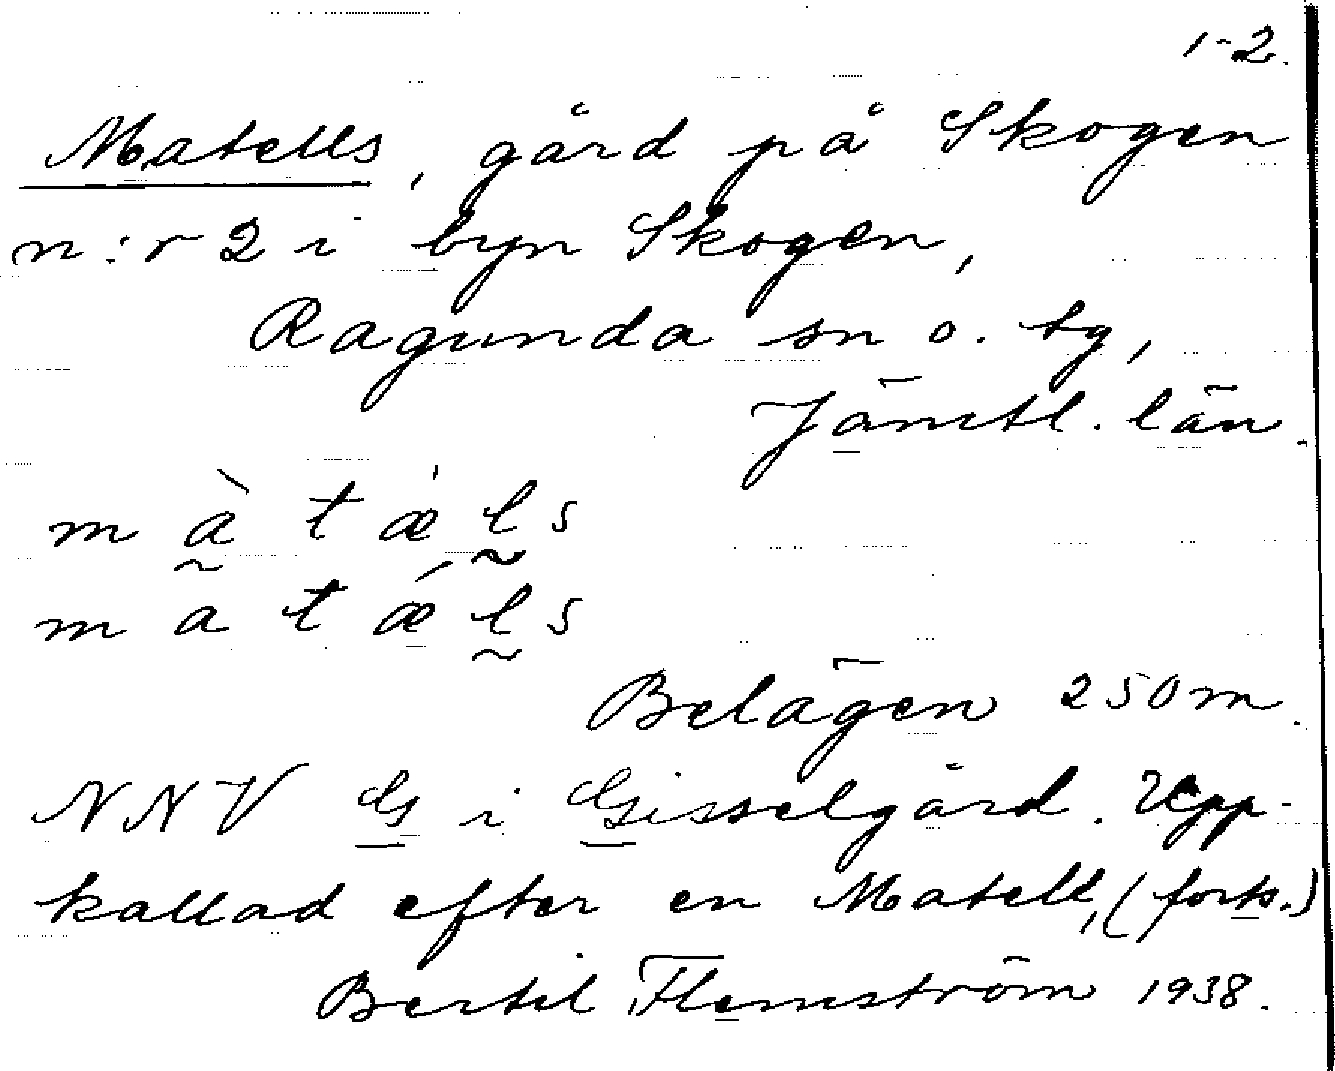 1-2.
Matells, gård på Skogen
n:r 2 i byn Skogen,
Ragunda sn o. tg,
Jämtl. län.
m à t æ̍ l̰ s
m a t ǽ l̰ s
Belägen 250 m.
NNV G i Gisselgård. Upp-
kallad efter en Matell, (forts.)
Bertil Flemström 1938.